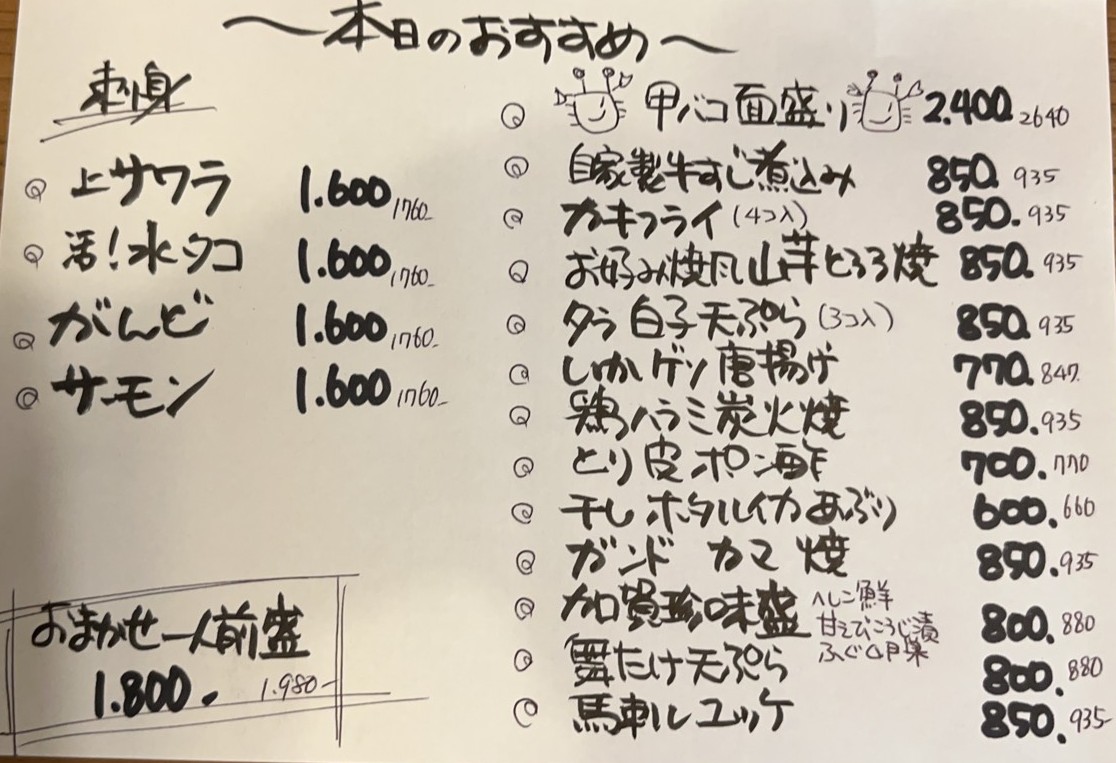 〜本日のおすすめ〜
刺身
上サワラ 1.600 1760-
活!水タコ 1.600 1760-
がんど 1.600 1760-
サーモン 1.600 1760-
おまかせ一人前盛
1.800- 1.980-
甲バコ面盛り 2.400 2640
自家製牛すじ煮込み 850. 935
カキフライ(4コ入) 850. 935
お好み焼風山芋とろろ焼 850. 935
タラ白子天ぷら(3コ入) 850. 935
いかゲソ唐揚げ 770. 847
鶏ハラミ炭火焼 850. 935
とり皮ポン酢 700. 770
干しホタルイカあぶり 600. 660
ガンド カマ 焼 850. 935
加賀珍味盛 800. 880
へしこ鯖
甘えびこうじ漬
ふぐ卵巣
舞たけ天ぷら 800. 880
馬刺ルユッケ 850. 935-